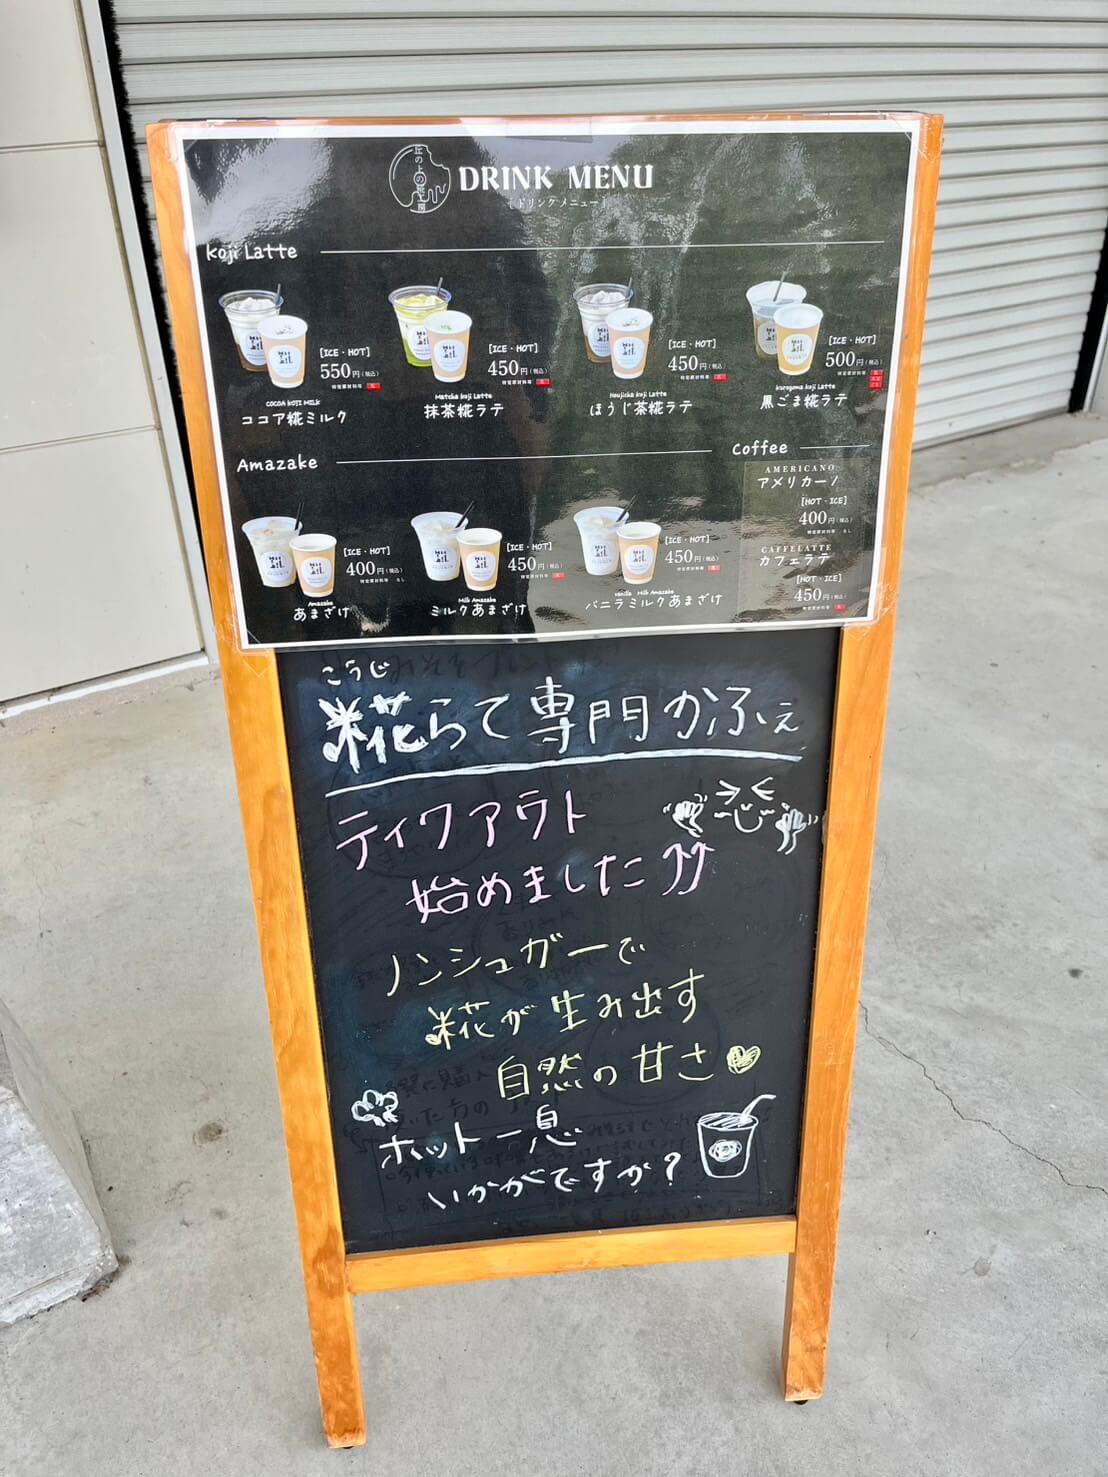 DRINK MENU
ドリンクメニュー
Koji Latte
[ICE・HOT]
550円(税込)
特定原材料等 乳
COCOA KOJI MILK
ココア糀ミルク
[ICE・HOT]
450円(税込)
特定原材料等 乳
Matcha Koji Latte
抹茶糀ラテ
[ICE・HOT]
450円(税込)
特定原材料等 乳
Houjicha koji Latte
ほうじ茶糀ラテ
[ICE・HOT]
500円(税込)
特定原材料等 乳
kurogoma koji Latte
黒ごま糀ラテ
Amazake
[ICE・HOT]
400円(税込)
特定原材料等 なし
Amazake
あまざけ
[ICE・HOT]
450円(税込)
特定原材料等 乳
Milk Amazake
ミルクあまざけ
[ICE・HOT]
450円(税込)
特定原材料等 乳
vanilla Milk Amazake
バニラミルクあまざけ
Coffee
AMERICANO
アメリカーノ
[HOT・ICE]
400円(税込)
特定原材料等 なし
CAFFELATTE
カフェラテ
[HOT・ICE]
450円(税込)
特定原材料等 乳
こうじ
糀らて専門かふぇ
ティクアウト
始めました
ノンシュガーで
糀が生み出す
自然の甘さ
ホット一息
いかがですか?